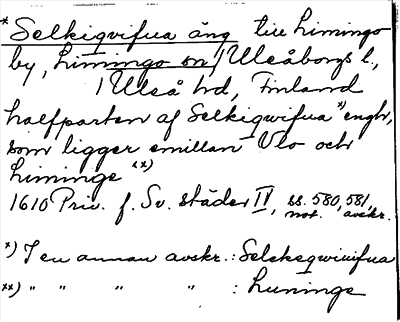 * Selkiqvifua äng till Limingo
by, Limingo sn, Uleåborgs l.,
Uleå hd, Finland
halfparten af Selkiqwifua x) engh,
som ligger emillan Vlo och
Liminge xx)
1610 Priv. f. Sv. städer IV, ss. 580, 581,
not. avskr.
x) I en annan avskr.: Selckeqwiuifua
xx) " " " " : Luninge